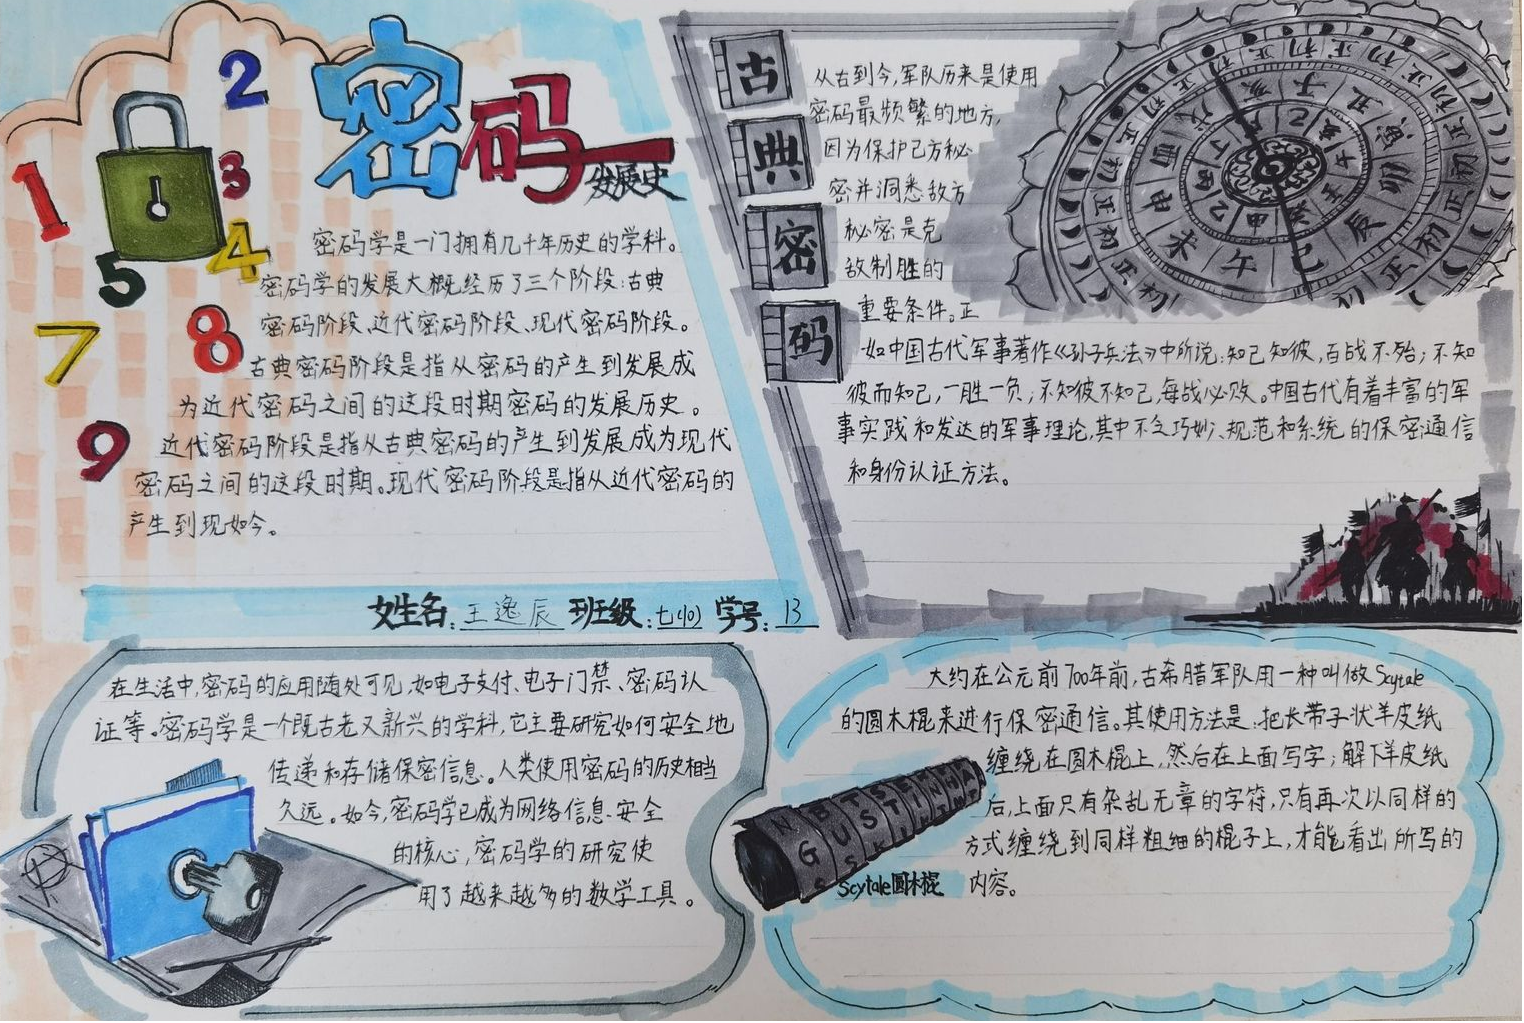 密码
发展史
1
2
3
4
5
7
8
9
密码学是一门拥有几千年历史的学科。
密码学的发展大概经历了三个阶段:古典
密码阶段、近代密码阶段、现代密码阶段。
古典密码阶段是指从密码的产生到发展成
为近代密码之间的这段时期密码的发展历史。
近代密码阶段是指从古典密码的产生到发展成为现代
密码之间的这段时期。现代密码阶段是指从近代密码的
产生到现如今。
姓名:王逸辰 班级:七(10) 学号:13
古典密码
从古到今,军队历来是使用
密码最频繁的地方,
因为保护己方秘
密并洞悉敌方
秘密是克
敌制胜的
重要条件。正
如中国古代军事著作《孙子兵法》中所说:知己知彼,百战不殆;不知
彼而知己,一胜一负;不知彼不知己,每战必败。中国古代有着丰富的军
事实践和发达的军事理论,其中不乏巧妙、规范和系统的保密通信
和身份认证方法。
在生活中,密码的应用随处可见,如电子支付、电子门禁、密码认
证等。密码学是一个既古老又新兴的学科,它主要研究如何安全地
传递和存储保密信息。人类使用密码的历史相当
久远。如今,密码学已成为网络信息安全
的核心,密码学的研究使
用了越来越多的数学工具。
大约在公元前700年前,古希腊军队用一种叫做Scytale
的圆木棍来进行保密通信。其使用方法是:把长带子状羊皮纸
缠绕在圆木棍上,然后在上面写字;解下羊皮纸
后,上面只有杂乱无章的字符,只有再次以同样的
方式缠绕到同样粗细的棍子上,才能看出所写的
内容。
Scytale圆木棍